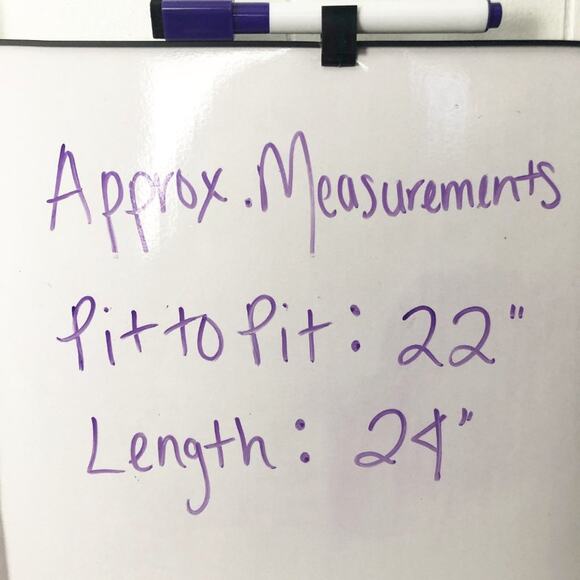 Approx. Measurements
Pit to Pit: 22"
Length: 24"